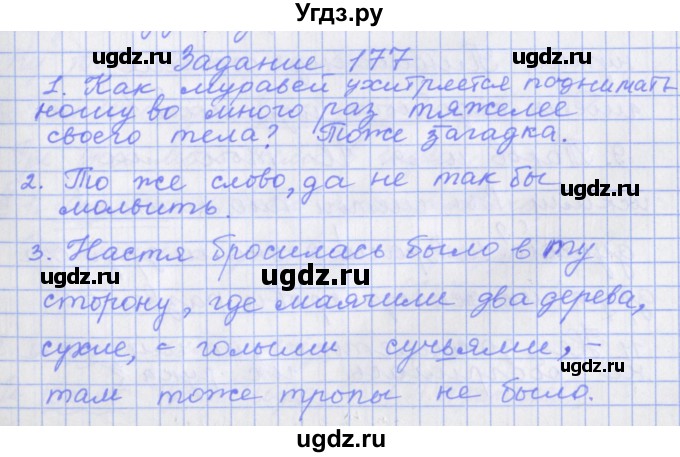 Угдз.ру
Задание 177
1. Как муравей ухитряется поднимать
ношу во много раз тяжелее
своего тела? Тоже загадка.
2. То же слово, да не так бы
молвить.
3. Настя бросилась было в ту
сторону, где маячили два дерева,
сухие, - голыми сучьями, -
там тоже тропы не было.
ugdz.ru
ugdz.ru
ugdz.ru
ugdz.ru
ugdz.ru
ugdz.ru
ugdz.ru
ugdz.ru
ugdz.ru
ugdz.ru
ugdz.ru